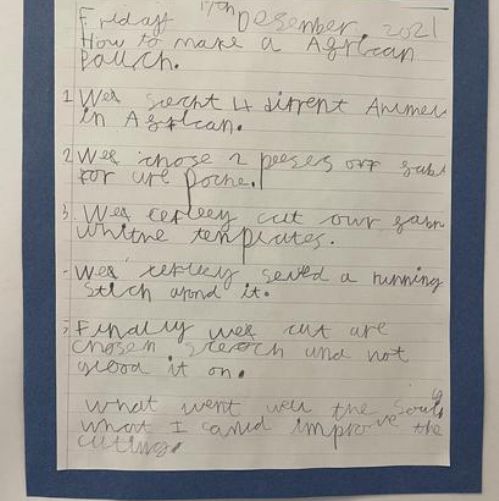 Friday 17th Desember 2021
How to make a African
pouch.
1 Wee scecht 4 dirrent Animel
in African.
2 Wee chose 2 peeses off fabr
for are poche.
3. Wee cerfley cut our fabr
whithe templates.
Wee cerfley sewed a running
stich arond it.
Finally wee cut are
chosen scecch and hot
glood it on.
What went well the
what I could improve the
cutting.